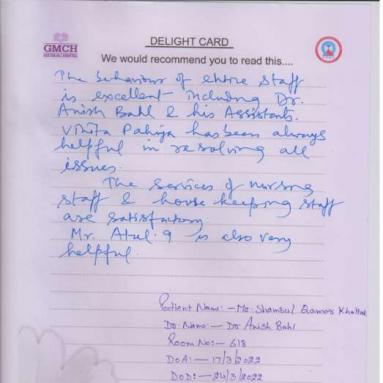 GMCH
DELIGHT CARD
We would recommend you to read this....
The behaviour of entire staff
is excellent including Dr.
Anish Bahl & his Assistants.
Vinita Pahuja has been always
helpful in resolving all
issues.
The services of nursing
staff & house keeping staff
are satisfactory
Mr. Atul. g is also very
helpful
Patient Name:- Mr. Shamsul Qamar Khattak
Dr. Name:- Dr Anish Bahl
Room No:- 618
DOA:- 17/3/2022
DOD:- 24/3/2022